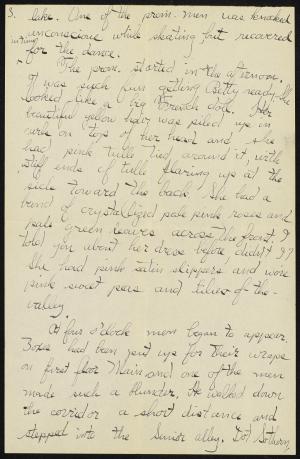 3. lake. One of the prom-men was knocked
unconscious while skating but recovered
in time
for the dance.
The prom. started in the afternoon.
It was such fun getting Betty ready. She
looked like a big French doll. Her
beautiful yellow hair was piled up in
curls on top of her head and she
had pink tulle tied around it, with
stiff ends of tulle flaring up at the
side toward the back. She had a
band of crystallized pale pink roses and
pale green leaves across the front. I
told you about her dress before didn't I?
She had pink satin slippers and wore
pink sweet peas and lilies-of-the-
valley.
At four o'clock men began to appear.
Boxes had been put up for their wraps
on first floor Main and one of the men
made such a blunder. He walked down
the corridor a short distance and
stepped into the Senior alley. Dot Sothern,